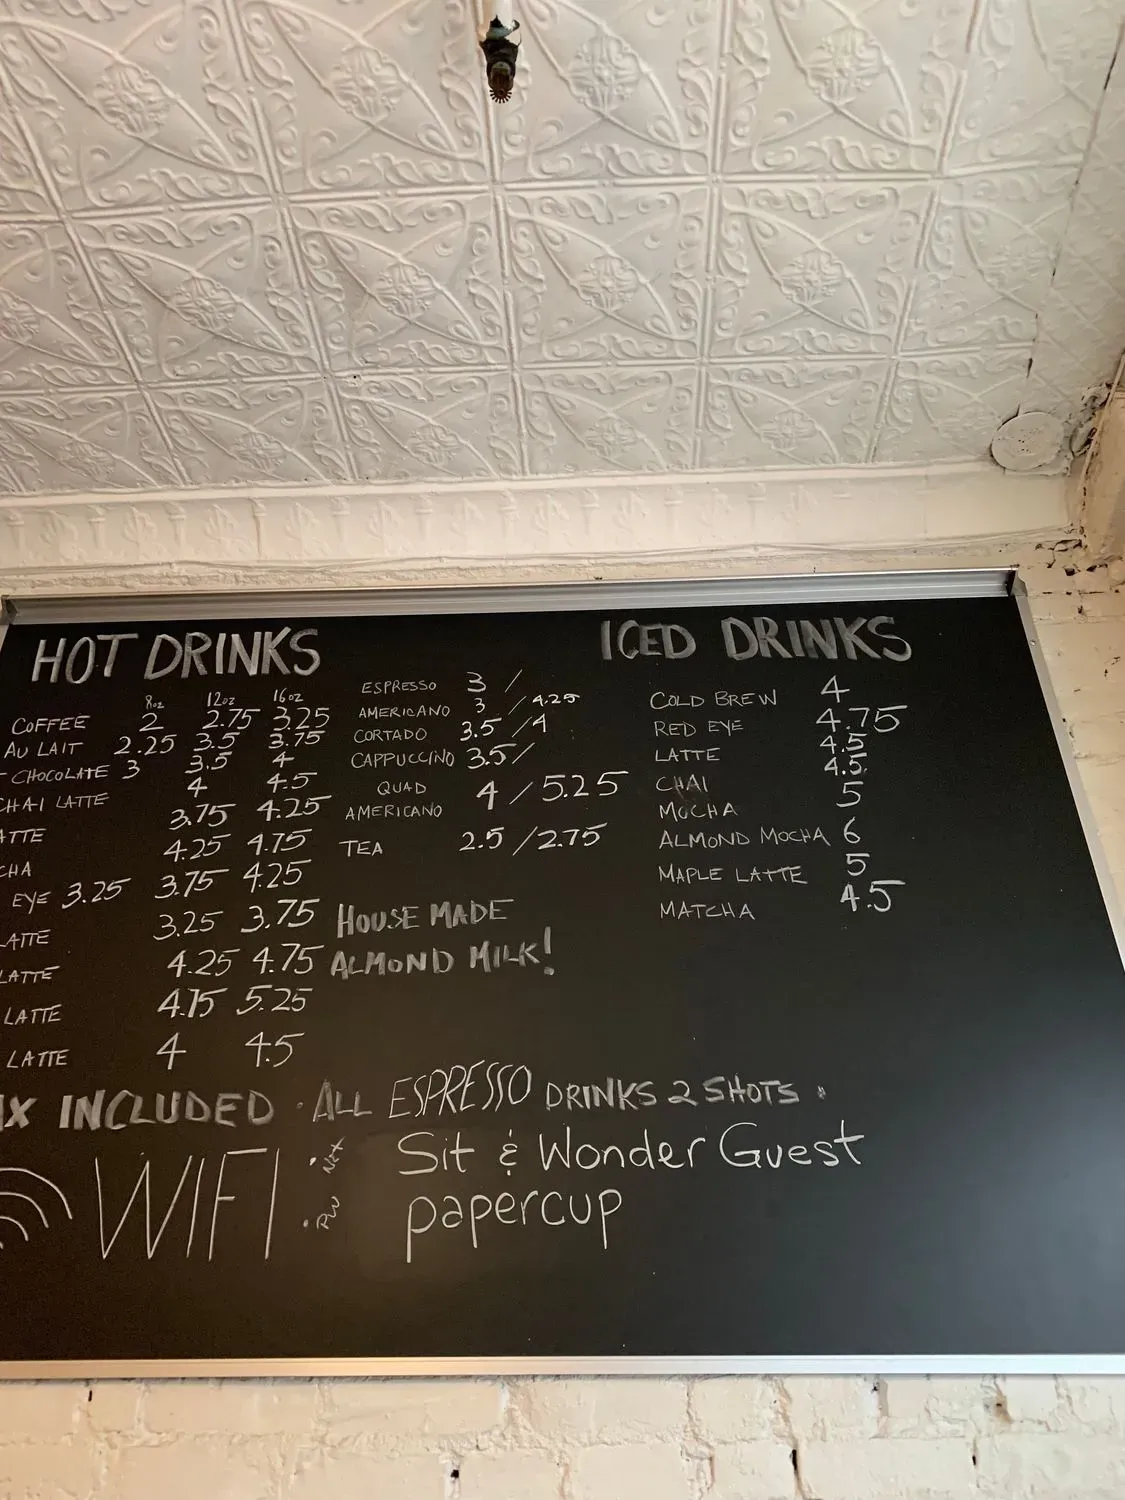 HOT DRINKS
8oz 12oz 16oz
COFFEE 2 2.75 3.25
AU LAIT 2.25 3.5 3.75
CHOCOLATE 3 3.5 4
CHAI LATTE 4 4.5
ATTE 3.75 4.25
CHA 4.25 4.75
EYE 3.25 3.75 4.25
LATTE 3.25 3.75
LATTE 4.25 4.75
LATTE 4.75 5.25
LATTE 4 4.5
ESPRESSO 3 /
AMERICANO 3 / 4.25
CORTADO 3.5 / 4
CAPPUCCINO 3.5 /
QUAD
AMERICANO 4 / 5.25
TEA 2.5 / 2.75
HOUSE MADE
ALMOND MILK!
ICED DRINKS
COLD BREW 4
RED EYE 4.75
LATTE 4.5
CHAI 4.5
MOCHA 5
ALMOND MOCHA 6
MAPLE LATTE 5
MATCHA 4.5
AX INCLUDED · ALL ESPRESSO DRINKS 2 SHOTS ·
WIFI
· Net Sit & Wonder Guest
· PW papercup